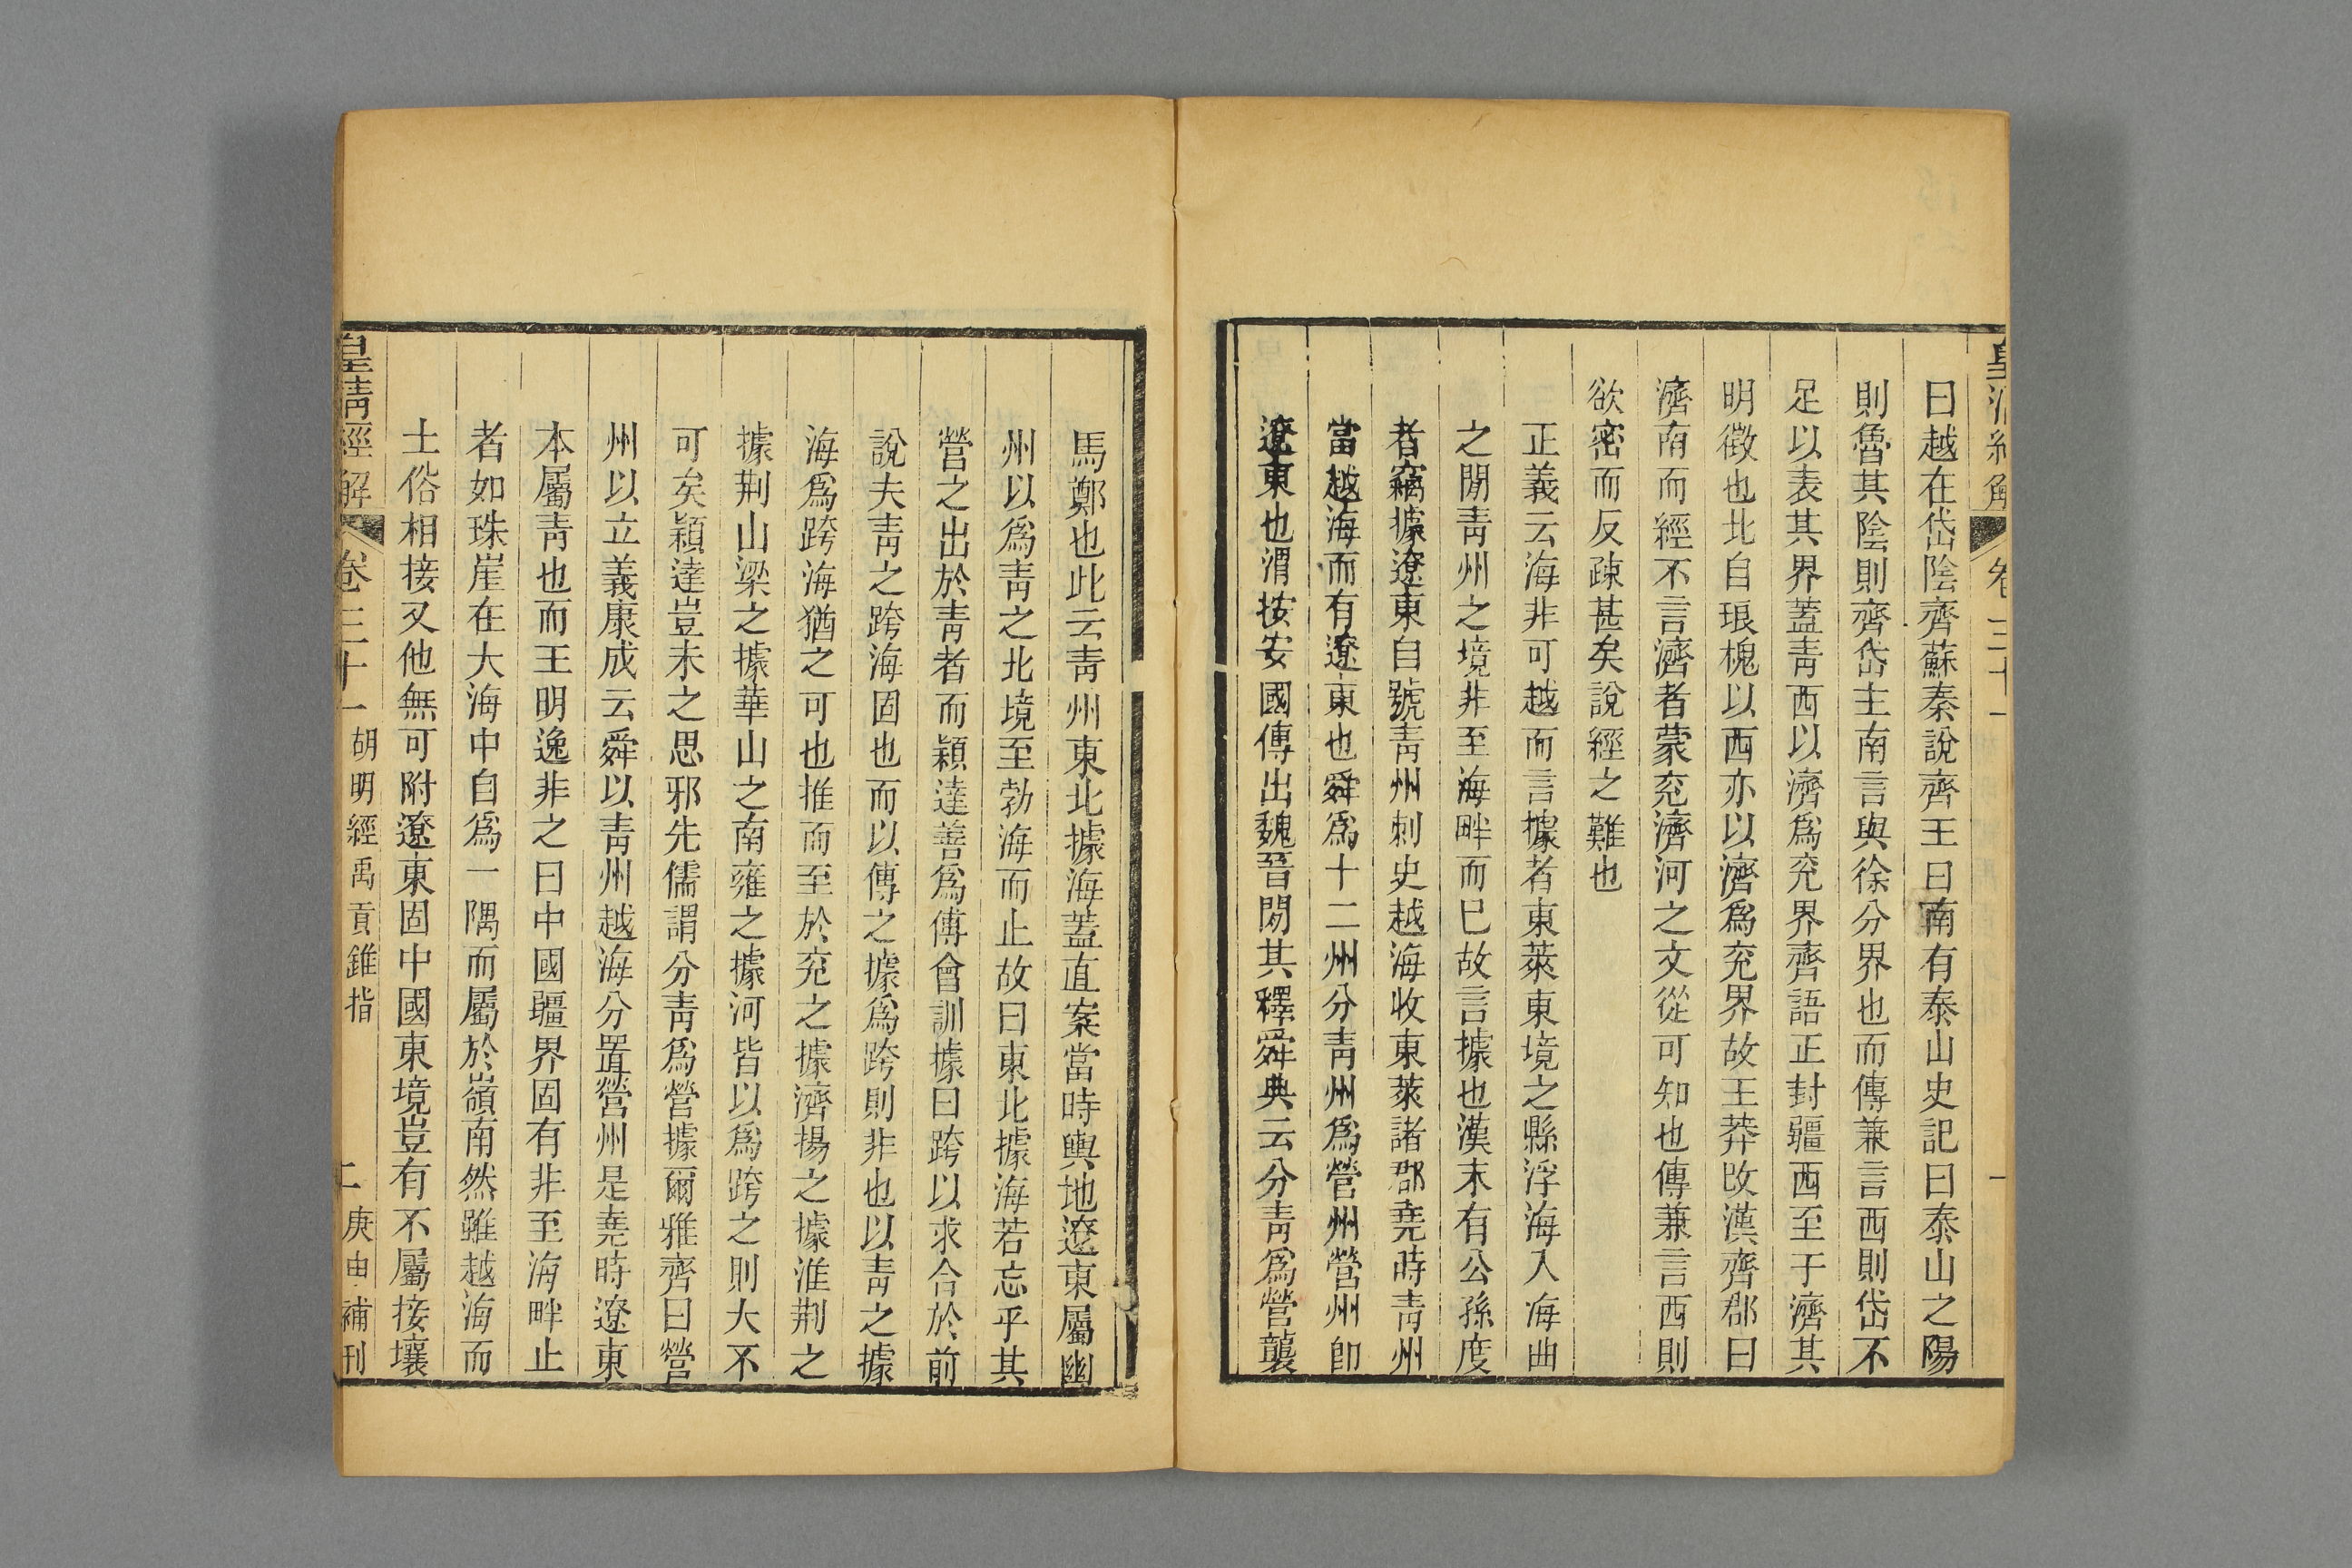 皇清經解 卷三十一 一
曰越在岱陰齊蘇秦說齊王曰南有泰山史記曰泰山之陽
則魯其陰則齊岱主南言與徐分界也而傳兼言西則岱不
足以表其界蓋靑西以濟爲兖界齊語正封疆西至于濟其
明徵也北自琅槐以西亦以濟爲兖界故王莽改漢齊郡曰
濟南而經不言濟者蒙兖濟河之文從可知也傳兼言西則
欲密而反疎甚矣說經之難也
正義云海非可越而言據者東萊東境之縣浮海入海曲
之閒靑州之境非至海畔而已故言據也漢末有公孫度
者竊據遼東自號靑州刺史越海收東萊諸郡堯時靑州
當越海而有遼東也舜爲十二州分靑州爲營州營州卽
遼東也渭按安國傳出魏晉閒其釋舜典云分靑爲營襲
馬鄭也此云靑州東北據海蓋直案當時輿地遼東屬幽
州以爲靑之北境至勃海而止故曰東北據海若忘乎其
營之出於靑者而穎達善爲傳會訓據曰跨以求合於前
說夫靑之跨海固也而以傳之據爲跨則非也以靑之據
海爲跨海猶之可也推而至於兖之據濟揚之據淮荆之
據荆山梁之據華山之南雍之據河皆以爲跨之則大不
可矣穎達豈未之思邪先儒謂分靑爲營據爾雅齊曰營
州以立義康成云舜以靑州越海分置營州是堯時遼東
本屬靑也而王明逸非之曰中國疆界固有非至海畔止
者如珠崖在大海中自爲一隅而屬於嶺南然雖越海而
土俗相接又他無可附遼東固中國東境豈有不屬接壤
皇清經解 卷三十一 胡明經禹貢錐指 二 庚申補刊